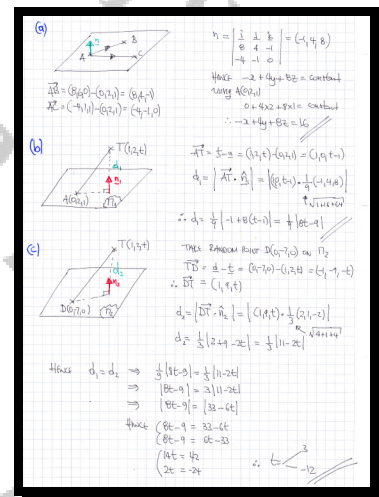 (a)
n = | i j k |
| 8 4 -1 |
| -4 -1 0 |
= (-1, 4, 8)
n
A
B
C
AB = (8,6,0)-(0,2,1) = (8,4,-1)
AC = (-4,1,1)-(0,2,1) = (-4,-1,0)
HENCE -x + 4y + 8z = constant
using A(0,2,1)
0 + 4x2 + 8x1 = constant
∴ -x + 4y + 8z = 16
(b)
T(1,2,t)
d₁
n₁
A(0,2,1)
Π₁
AT = t - a = (1,2,t)-(0,2,1) = (1,0,t-1)
d₁ = |AT · n̂₁| = |(1,0,t-1)·1/9(-1,4,8)|
√1+16+64
∴ d₁ = 1/9 |-1+8(t-1)| = 1/9 |8t-9|
(c)
T(1,2,t)
d₂
n₂
D(0,-7,0)
Π₂
TAKE RANDOM POINT D(0,-7,0) ON Π₂
TD = d - t = (0,-7,0)-(1,2,t) = (-1,-9,-t)
∴ DT = (1,9,t)
d₂ = |DT · n̂₂| = |(1,9,t)·1/3(2,1,-2)|
√4+1+4
d₂ = 1/3 |2+9-2t| = 1/3 |11-2t|
HENCE d₁ = d₂ ⇒ 1/9|8t-9| = 1/3|11-2t|
⇒ |8t-9| = 3|11-2t|
⇒ |8t-9| = |33-6t|
HENCE (8t-9 = 33-6t
(8t-9 = 6t-33
(14t = 42
(2t = -24
∴ t = 3
-12